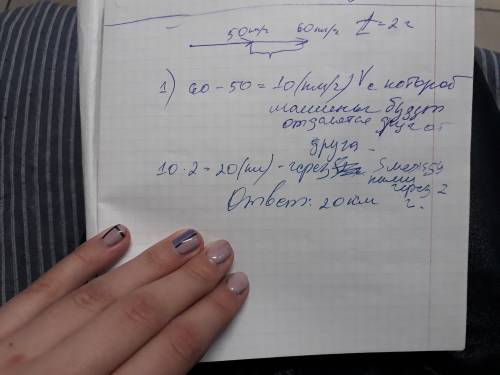 50 км/ч 60 км/ч t = 2 ч
1) 60 - 50 = 10 (км/ч) V с которой
машины будут
отдалятся друг от
друга.
10 · 2 = 20 (км) - через S между
ними
через 2
Ответ: 20 км ч.